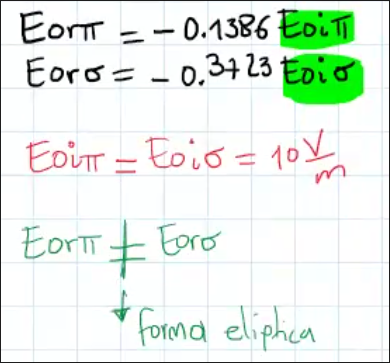 Eorπ = -0.1386 Eoiπ
Eorσ = -0.3723 Eoiσ
Eoiπ = Eoiσ = 10 V/m
Eorπ ≠ Eorσ
forma eliptica